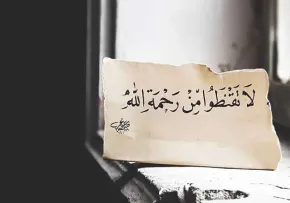 لَا تَقْنَطُوا مِنْ رَحْمَةِ اللَّهِ